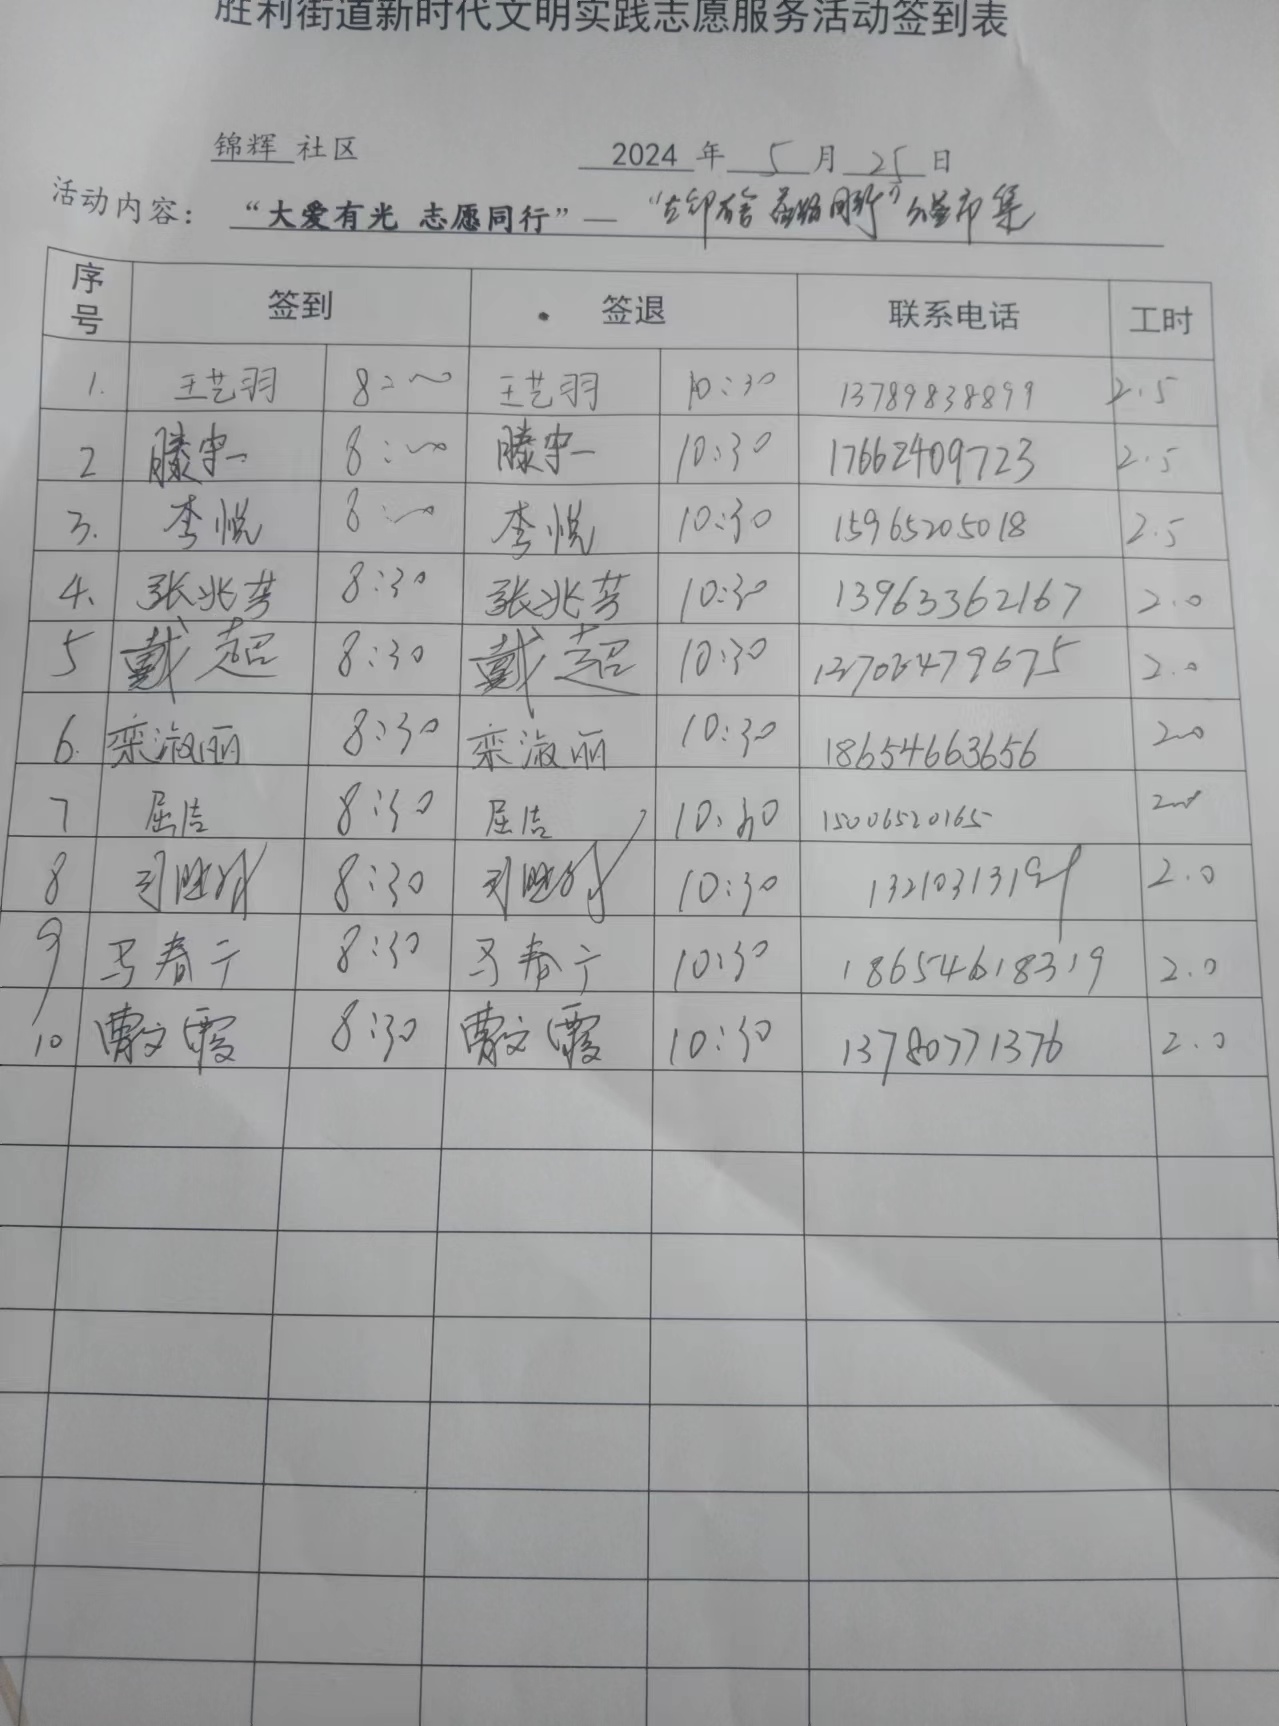 胜利街道新时代文明实践志愿服务活动签到表
锦辉 社区 2024 年 5 月 25 日
活动内容: “大爱有光 志愿同行” — “左邻右舍 益路同行” 公益市集
序号 签到 签退 联系电话 工时
1. 王艺羽 8:00 王艺羽 10:30 13789838899 2.5
2 滕宇一 8:00 滕宇一 10:30 17662409723 2.5
3. 李悦 8:00 李悦 10:30 15965205018 2.5
4. 张兆芳 8:30 张兆芳 10:30 13963362167 2.0
5 戴超 8:30 戴超 10:30 2.0
6. 栾淑丽 8:30 栾淑丽 10:30 18654663656 2.0
7 屈洁 8:30 屈洁 10:30 15006520165 2.0
8 8:30 10:30 2.0
9 马春宁 8:30 马春宁 10:30 18654618319 2.0
10 曹文霞 8:30 曹文霞 10:30 13780771376 2.0